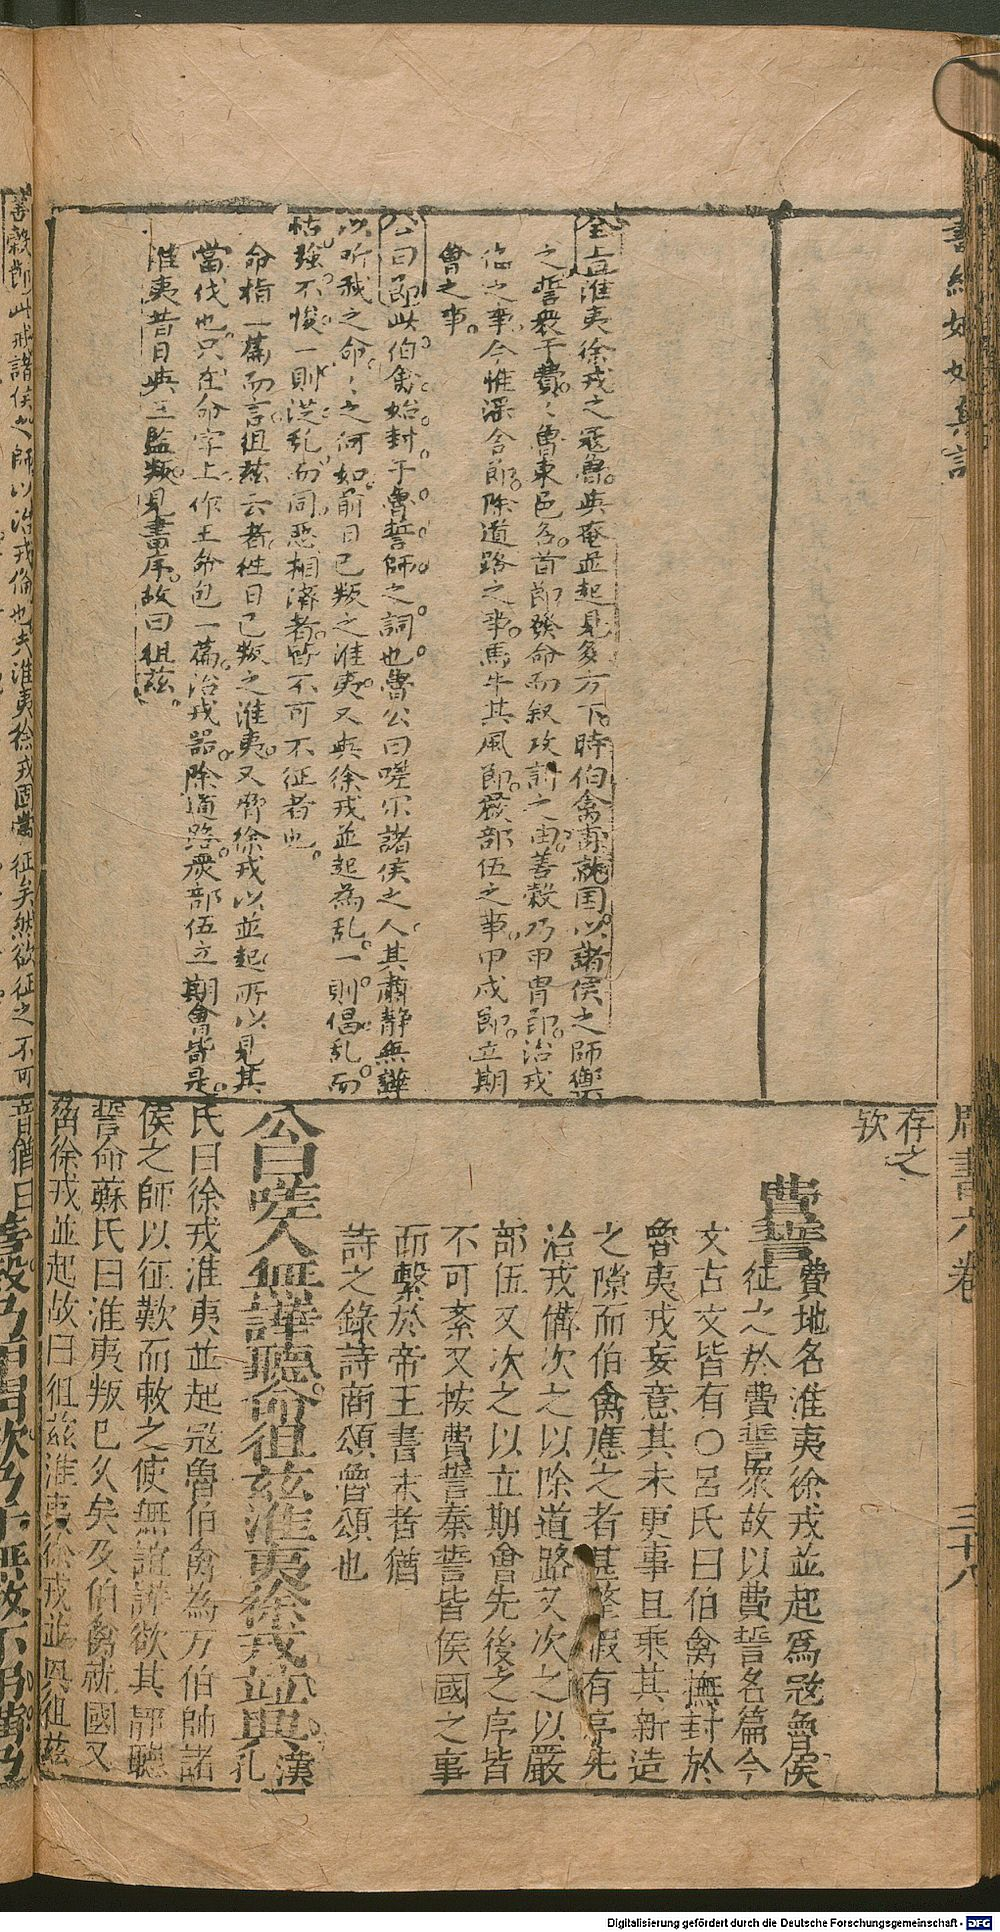 周書六卷
三十八
全旨淮夷徐戎之寇魯與奄並起見多方下時伯禽再就国以諸侯之師禦
之誓衆于費〻魯東邑名首節發命而叙攻討之由善穀乃甲冑節治戎
俻之事今惟淫舍節除道路之事馬牛其風節嚴部伍之事甲戌節立期
會之事
公曰節此伯禽始封于魯誓師之詞也魯公曰嗟尔諸侯之人其肅静無譁
以听我之命〻之何如前日已叛之淮夷又與徐戎並起為乱一則倡乱而
怙強不悛一則從乱而同惡相濟者皆不可不征者也
命指一篇而言徂茲云者徃日已叛之淮夷又脅徐戎以並起所以見其
當伐也只在命字上作王命包一篇治戎器除道路衆部伍立期會皆是
淮夷昔日與三監叛見書序故曰徂茲
存之
欤
費誓
費地名淮夷徐戎並起爲宼魯侯
征之於費誓衆故以費誓名篇今
文古文皆有○呂氏曰伯禽撫封於
魯夷戎妄意其未更事且乗其新造
之隙而伯禽應之者甚整暇有序先
治戎備次之以除道路又次之以嚴
部伍又次之以立期會先後之序皆
不可紊又按費誓秦誓皆侯國之事
而繫於帝王書末者猶
詩之錄詩商頌魯頌也
公曰嗟人無譁聽命徂茲淮夷徐戎並興漢孔
氏曰徐戎淮夷並起宼魯伯禽為方伯帥諸
侯之師以征歎而敕之使無諠譁欲其静聽
誓命蘇氏曰淮夷叛已久矣及伯禽就國又
脅徐戎並起故曰徂茲淮夷徐戎並興徂茲
善穀節此戒諸侯之師以治戎俻也夫淮夷徐戎固當征矣然欲征之不可
音猶曰
Digitalisierung gefördert durch die Deutsche Forschungsgemeinschaft - DFG